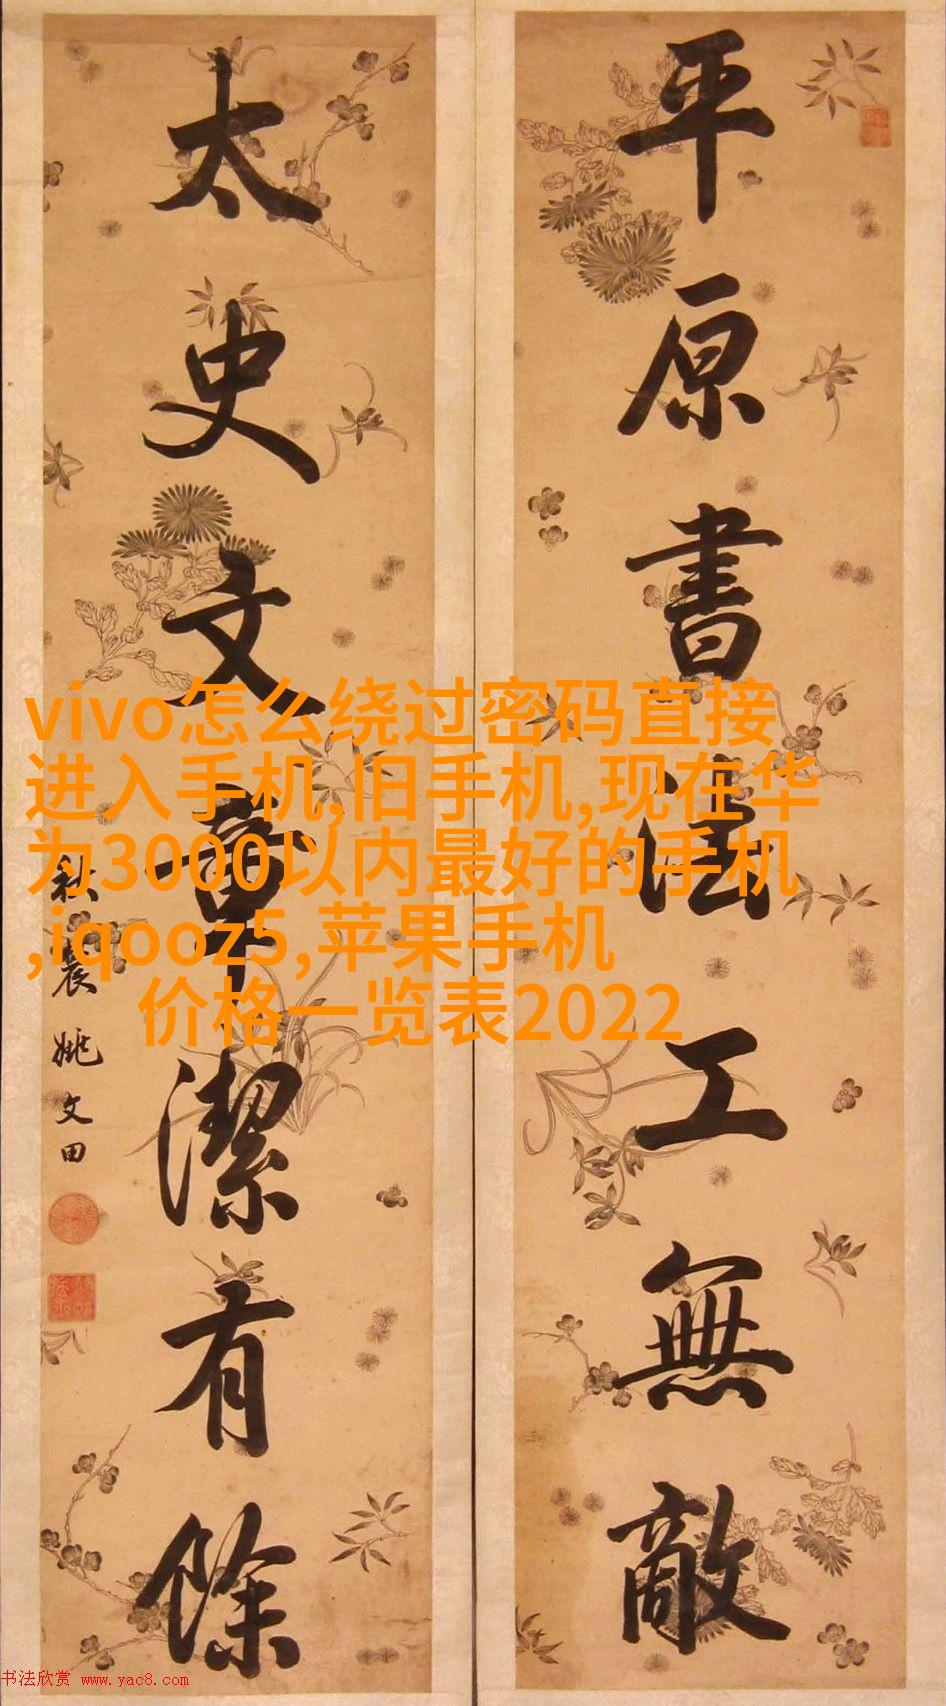 平原書法工無敵
太史文章潔有餘
秋農姚文田
vivo怎么绕过密码直接
进入手机,旧手机,现在华
为3000以内最好的手机
,iqooz5,苹果手机
价格一览表2022
书法欣赏 www.yac8.com